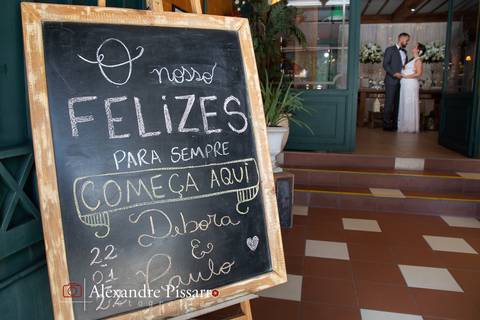 O nosso
FELIZES
PARA SEMPRE
COMEÇA AQUI
Debora
&
Paulo
22
01
22
Alexandre Pissarro